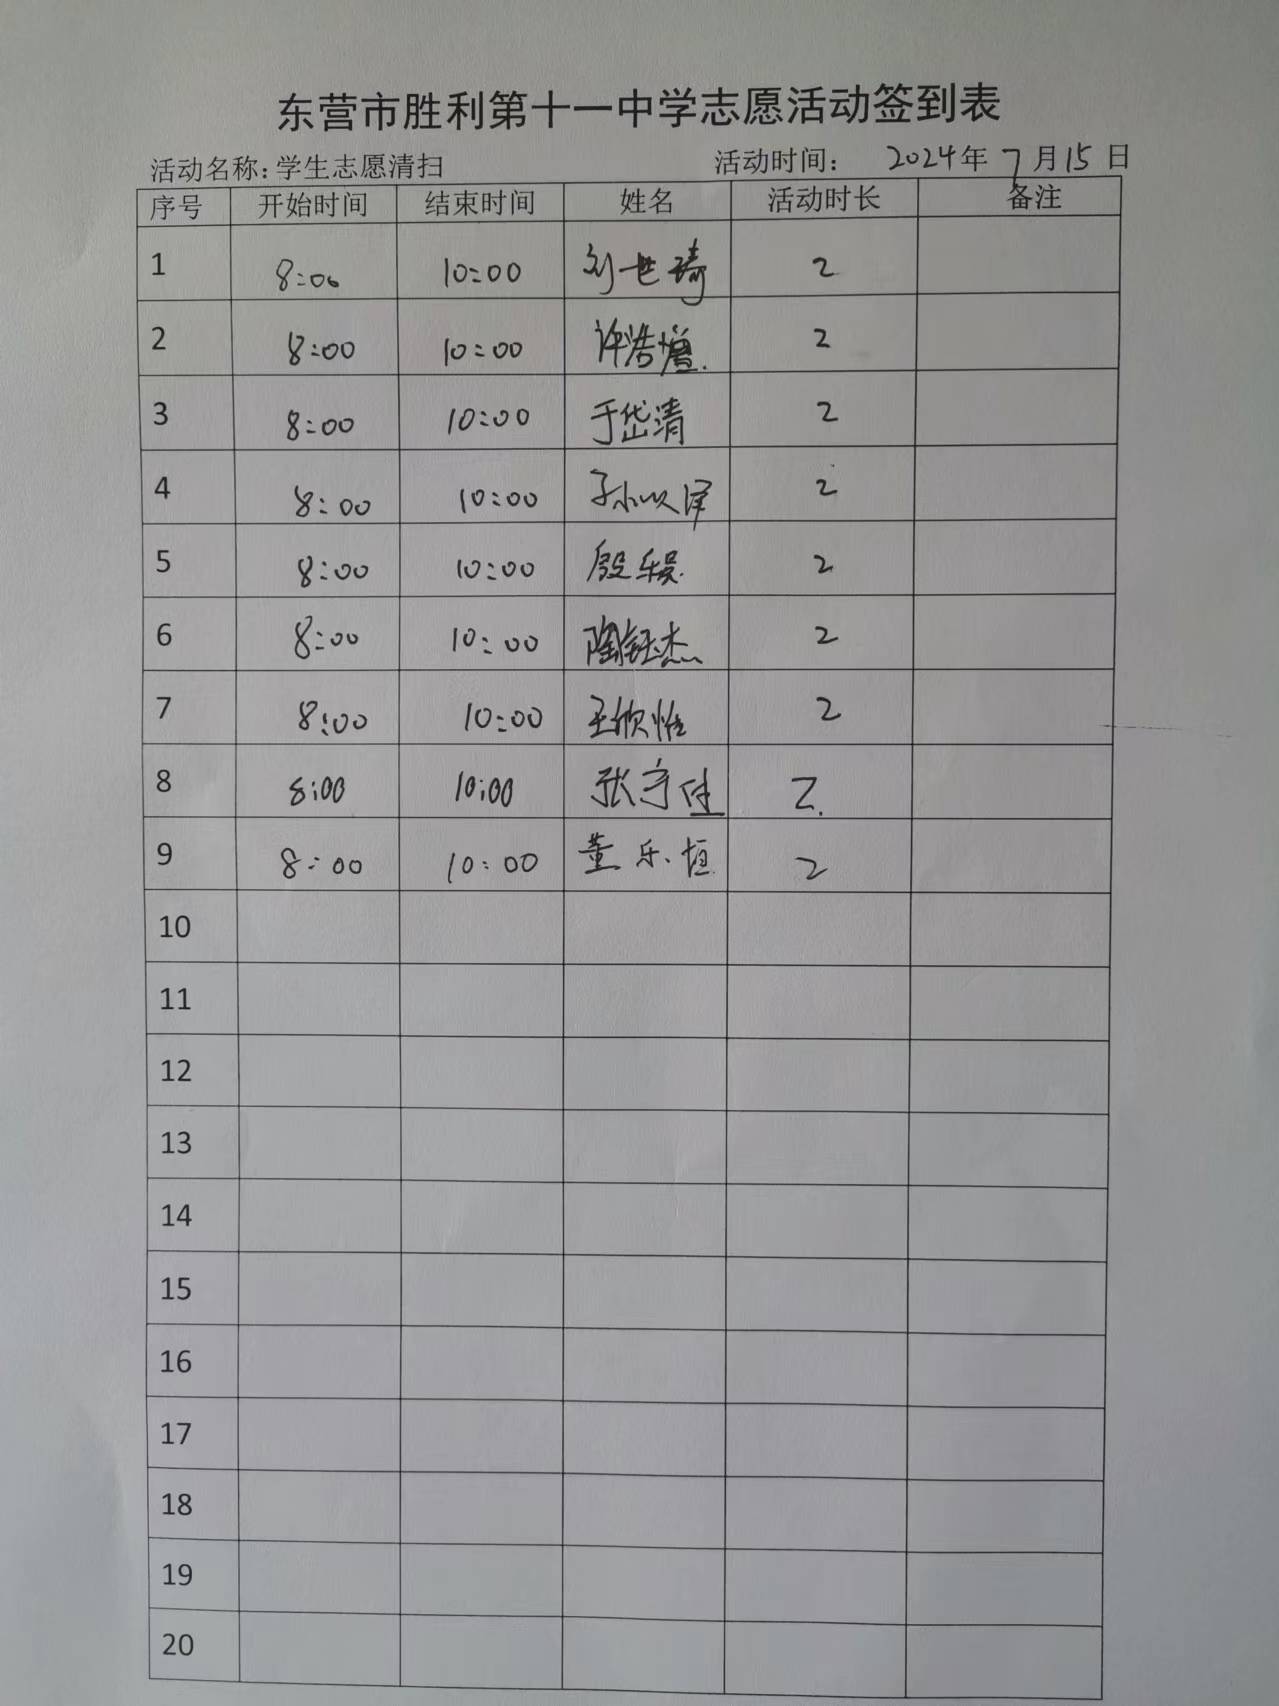 东营市胜利第十一中学志愿活动签到表
活动名称:学生志愿清扫 活动时间: 2024年 7月15日
序号 开始时间 结束时间 姓名 活动时长 备注
1 8:00 10:00 刘世琦 2
2 8:00 10:00 许浩 2
3 8:00 10:00 于岱清 2
4 8:00 10:00 孙以泽 2
5 8:00 10:00 殷乐 2
6 8:00 10:00 陶钰杰 2
7 8:00 10:00 王欣怡 2
8 8:00 10:00 张宇佳 2
9 8:00 10:00 董乐恒 2
10
11
12
13
14
15
16
17
18
19
20